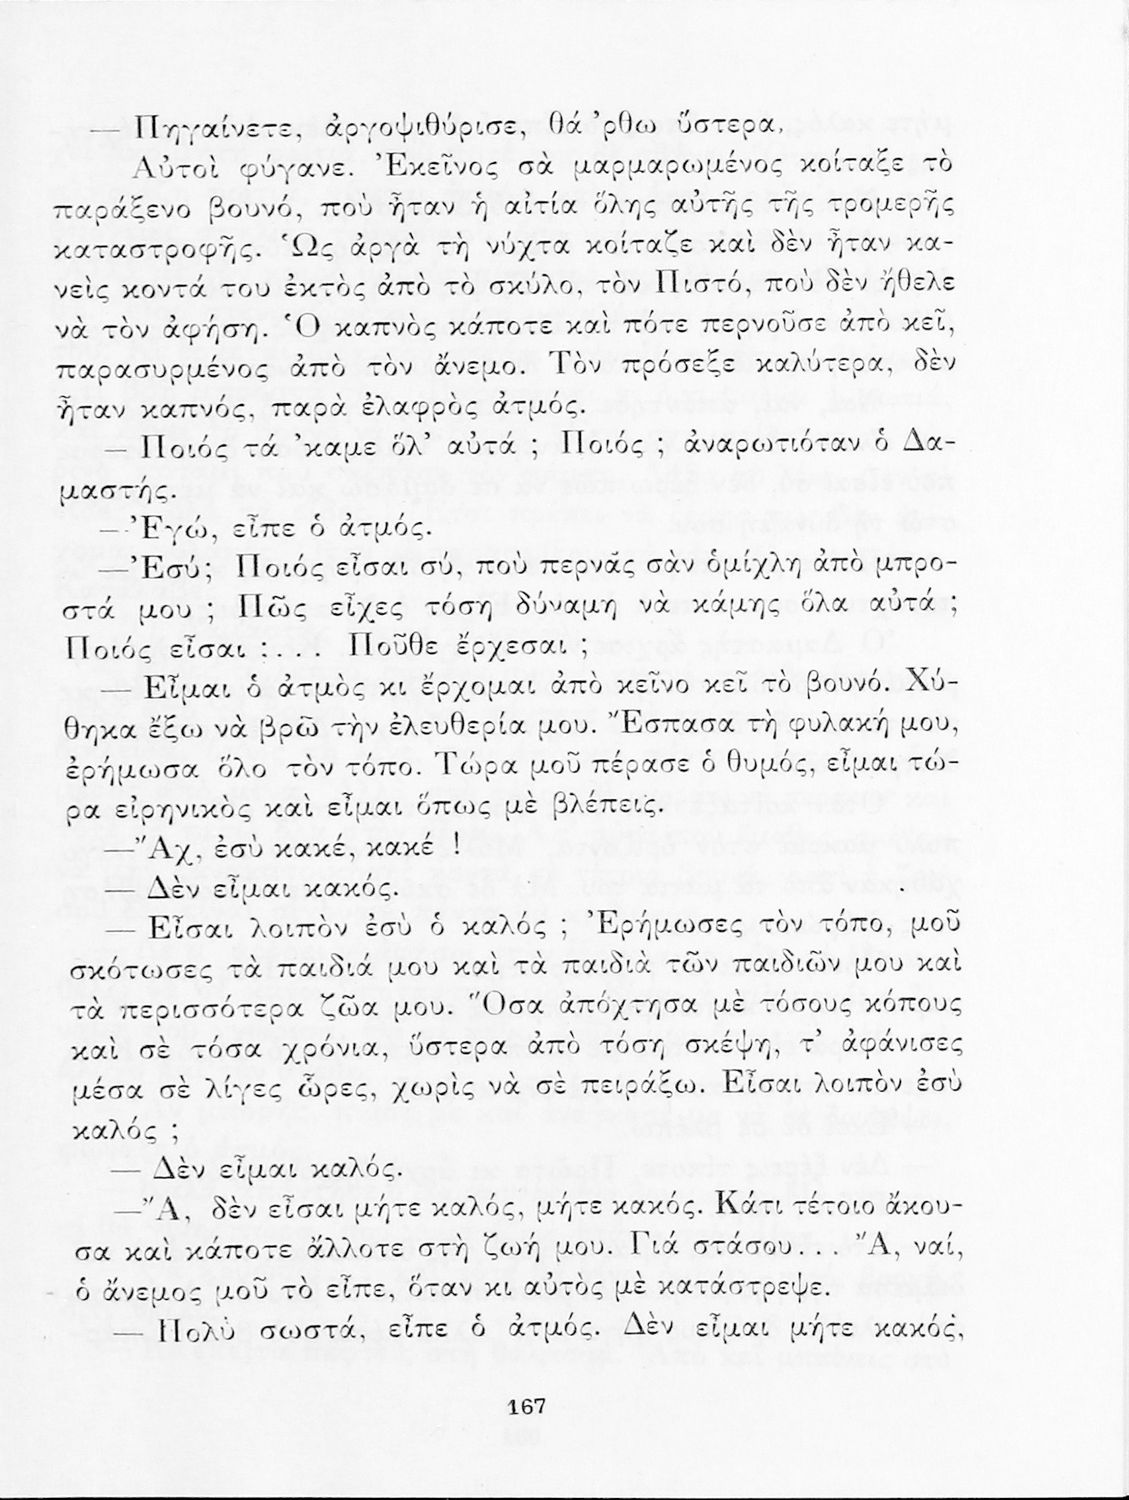 — Πηγαίνετε, ἀργοψιθύρισε, θά 'ρθω ὕστερα.
Αὐτοὶ φύγανε. Ἐκεῖνος σὰ μαρμαρωμένος κοίταξε τὸ
παράξενο βουνό, ποὺ ἦταν ἡ αἰτία ὅλης αὐτῆς τῆς τρομερῆς
καταστροφῆς. Ὡς ἀργὰ τὴ νύχτα κοίταζε καὶ δὲν ἦταν κα-
νεὶς κοντά του ἐκτὸς ἀπὸ τὸ σκύλο, τὸν Πιστό, ποὺ δὲν ἤθελε
νὰ τὸν ἀφήση. Ὁ καπνὸς κάποτε καὶ πότε περνοῦσε ἀπὸ κεῖ,
παρασυρμένος ἀπὸ τὸν ἄνεμο. Τὸν πρόσεξε καλύτερα, δὲν
ἦταν καπνός, παρὰ ἐλαφρὸς ἀτμός.
— Ποιός τά 'καμε ὅλ' αὐτά ; Ποιός ; ἀναρωτιόταν ὁ Δα-
μαστής.
— Ἐγώ, εἶπε ὁ ἀτμός.
—Ἐσύ; Ποιός εἶσαι σύ, ποὺ περνᾶς σὰν ὁμίχλη ἀπὸ μπρο-
στά μου ; Πῶς εἶχες τόση δύναμη νὰ κάμης ὅλα αὐτά ;
Ποιός εἶσαι ;... Ποῦθε ἔρχεσαι ;
— Εἶμαι ὁ ἀτμὸς κι ἔρχομαι ἀπὸ κεῖνο κεῖ τὸ βουνό. Χύ-
θηκα ἔξω νὰ βρῶ τὴν ἐλευθερία μου. Ἔσπασα τὴ φυλακή μου,
ἐρήμωσα ὅλο τὸν τόπο. Τώρα μοῦ πέρασε ὁ θυμός, εἶμαι τώ-
ρα εἰρηνικὸς καὶ εἶμαι ὅπως μὲ βλέπεις.
—Ἄχ, ἐσὺ κακέ, κακέ !
— Δὲν εἶμαι κακός.
— Εἶσαι λοιπὸν ἐσὺ ὁ καλός ; Ἐρήμωσες τὸν τόπο, μοῦ
σκότωσες τὰ παιδιά μου καὶ τὰ παιδιὰ τῶν παιδιῶν μου καὶ
τὰ περισσότερα ζῶα μου. Ὅσα ἀπόχτησα μὲ τόσους κόπους
καὶ σὲ τόσα χρόνια, ὕστερα ἀπὸ τόση σκέψη, τ' ἀφάνισες
μέσα σὲ λίγες ὧρες, χωρὶς νὰ σὲ πειράξω. Εἶσαι λοιπὸν ἐσὺ
καλός ;
— Δὲν εἶμαι καλός.
—Ἄ, δὲν εἶσαι μήτε καλός, μήτε κακός. Κάτι τέτοιο ἄκου-
σα καὶ κάποτε ἄλλοτε στὴ ζωή μου. Γιά στάσου... Ἄ, ναί,
ὁ ἄνεμος μοῦ τὸ εἶπε, ὅταν κι αὐτὸς μὲ κατάστρεψε.
— Πολὺ σωστά, εἶπε ὁ ἀτμός. Δὲν εἶμαι μήτε κακός,
167